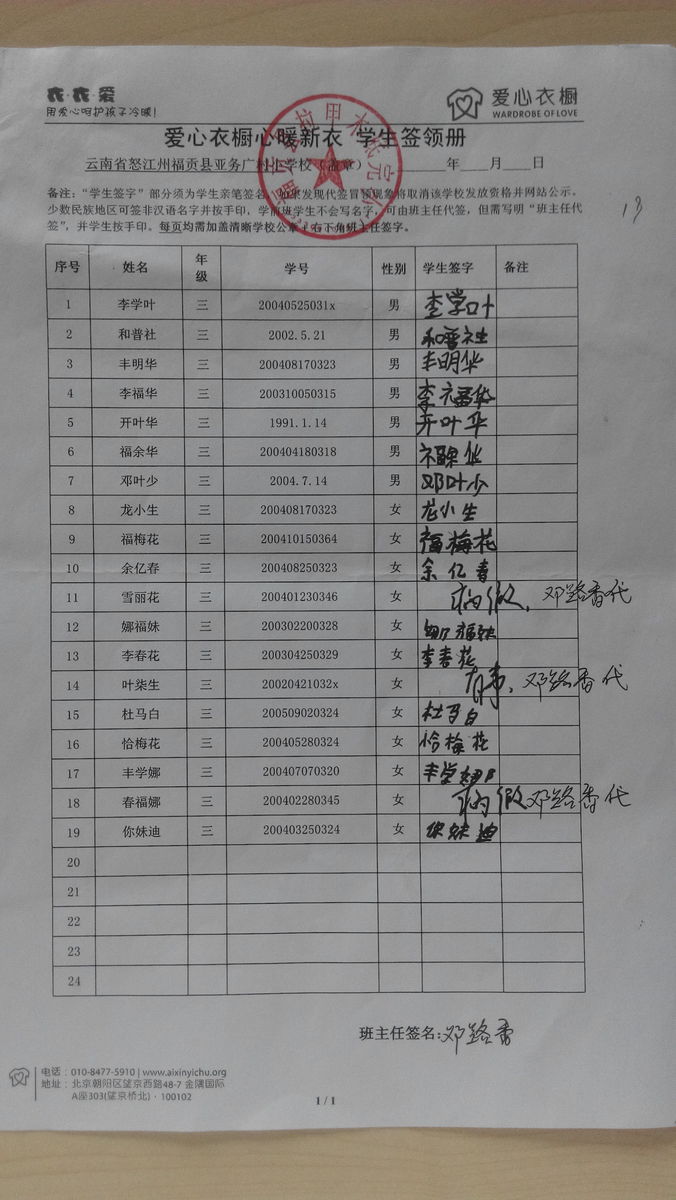 衣·衣·爱
用爱心呵护孩子冷暖!
爱心衣橱
WARDROBE OF LOVE
爱心衣橱心暖新衣 学生签领册
云南省怒江州福贡县亚务广村小学校（盖章） 年 月 日
备注：“学生签字”部分须为学生亲笔签名，如果发现代签冒领现象将取消该学校发放资格并网站公示。
少数民族地区可签非汉语名字并按手印，学前班学生不会写名字，可由班主任代签，但需写明“班主任代
签”，并学生按手印。每页均需加盖清晰学校公章，右下角班主任签字。
13
序号 姓名 年级 学号 性别 学生签字 备注
1 李学叶 三 20040525031x 男 李学叶
2 和普社 三 2002.5.21 男 和普社
3 丰明华 三 200408170323 男 丰明华
4 李福华 三 200310050315 男 李福华
5 开叶华 三 1991.1.14 男 开叶华
6 福余华 三 200404180318 男
7 邓叶少 三 2004.7.14 男 邓叶少
8 龙小生 三 200408170323 女 龙小生
9 福梅花 三 200410150364 女 福梅花
10 余亿春 三 200408250323 女 余亿春
11 雪丽花 三 200401230346 女 病假，邓路香代
12 娜福妹 三 200302200328 女 娜福妹
13 李春花 三 200304250329 女 李春花
14 叶柒生 三 20020421032x 女 有事，邓路香代
15 杜马白 三 200509020324 女 杜马白
16 恰梅花 三 200405280324 女 恰梅花
17 丰学娜 三 200407070320 女 丰学娜
18 春福娜 三 200402280345 女 病假邓路香代
19 你妹迪 三 200403250324 女 你妹迪
20
21
22
23
24
班主任签名:邓路香
电话：010-8477-5910 | www.aixinyichu.org
地址：北京朝阳区望京西路48-7 金隅国际
A座303(望京桥北)·100102
1 / 1